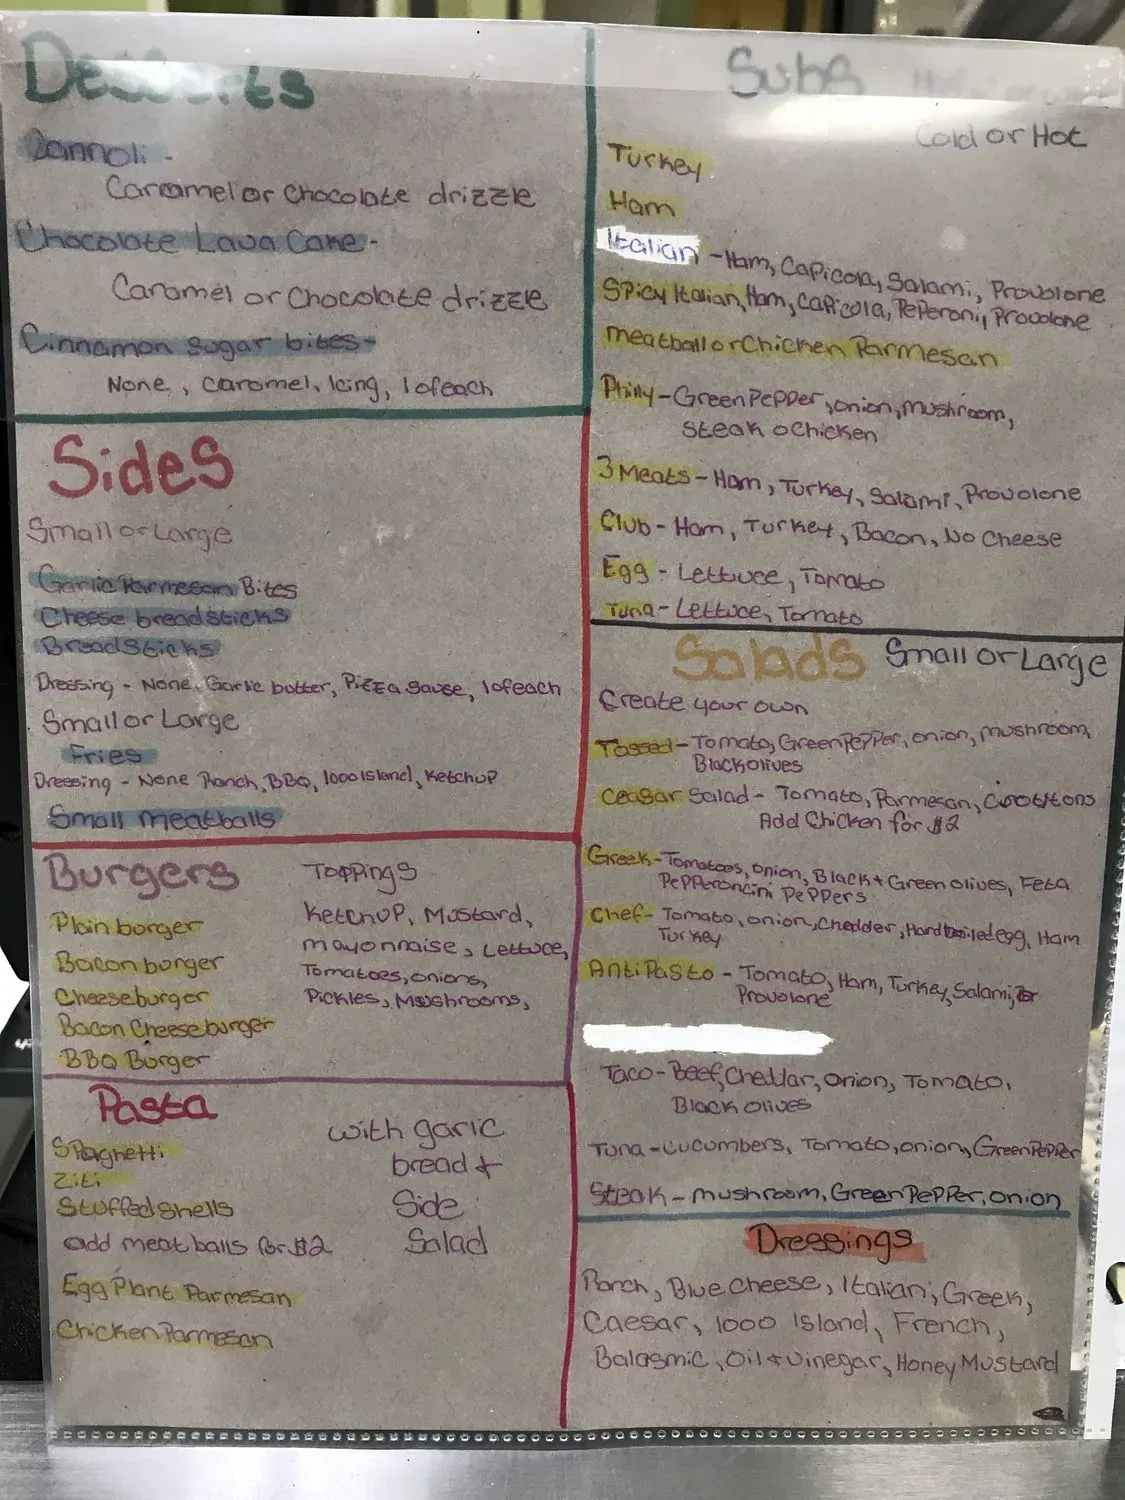 Desserts
Cannoli -
Caramel or Chocolate drizzle
Chocolate Lava Cake -
Caramel or Chocolate drizzle
Cinnamon sugar bites -
None, Caramel, Icing, 1 of each
Sides
Small or Large
Garlic Parmesan Bites
Cheese breadsticks
Breadsticks
Dressing - None, Garlic butter, Pizza Sause, 1 of each
Small or Large
Fries
Dressing - None Ranch, BBQ, 1000 Island, Ketchup
Small meatballs
Burgers
Toppings
Plain burger
Bacon burger
Cheeseburger
Bacon Cheeseburger
BBQ Burger
Ketchup, Mustard,
mayonnaise, Lettuce,
Tomatoes, onions,
Pickles, Mushrooms,
Pasta
Spaghetti
Ziti
Stuffed shells
add meatballs for $2
Egg Plant Parmesan
Chicken Parmesan
with garic
bread &
Side
Salad
Subs
Cold or Hot
Turkey
Ham
Italian - Ham, Capicola, Salami, Provolone
Spicy Italian, Ham, Capicola, Peperoni, Provolone
meatball or Chicken Parmesan
Philly - Green Pepper, onion, mushroom,
Steak o Chicken
3 Meats - Ham, Turkey, Salami, Provolone
Club - Ham, Turkey, Bacon, No Cheese
Egg - Lettuce, Tomato
Tuna - Lettuce, Tomato
Salads Small or Large
Create your own
Tossed - Tomato, Green Pepper, onion, mushroom,
Black olives
Ceasar Salad - Tomato, Parmesan, Croutons
Add Chicken for $2
Greek - Tomatoes, onion, Black & Green olives, Feta
Pepperoncini Peppers
Chef - Tomato, onion, Chedder, Hardboiled egg, Ham
Turkey
AntiPasto - Tomato, Ham, Turkey, Salami,
Provolone
Taco - Beef, Cheddar, onion, Tomato,
Black olives
Tuna - cucumbers, Tomato, onion, Green Pepper
Steak - mushroom, Green Pepper, onion
Dressings
Ranch, Blue Cheese, Italian, Greek,
Caesar, 1000 Island, French,
Balasmic, Oil & Vinegar, Honey Mustard